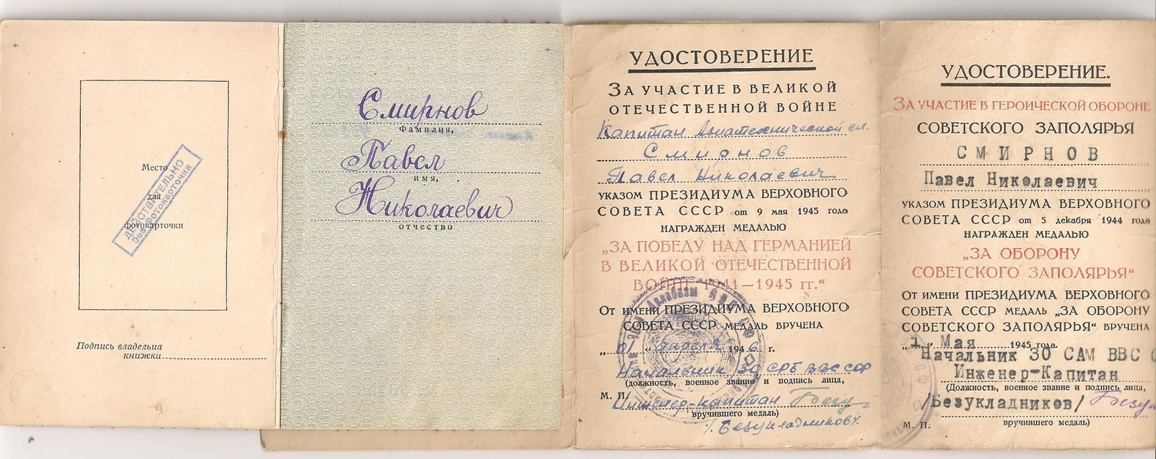 Место
для
фотокарточки
ДЕЙСТВИТЕЛЬНО
без фотокарточки
Подпись владельца
книжки
Смирнов
Фамилия,
Павел
имя,
Николаевич
отчество
УДОСТОВЕРЕНИЕ
ЗА УЧАСТИЕ В ВЕЛИКОЙ
ОТЕЧЕСТВЕННОЙ ВОЙНЕ
Капитан Авиатехнической сл.
Смирнов
Павел Николаевич
УКАЗОМ ПРЕЗИДИУМА ВЕРХОВНОГО
СОВЕТА СССР от 9 мая 1945 года
НАГРАЖДЕН МЕДАЛЬЮ
„ЗА ПОБЕДУ НАД ГЕРМАНИЕЙ
В ВЕЛИКОЙ ОТЕЧЕСТВЕННОЙ
ВОЙНЕ 1941—1945 гг.“
ОТ ИМЕНИ ПРЕЗИДИУМА ВЕРХОВНОГО
СОВЕТА СССР МЕДАЛЬ ВРУЧЕНА
„01“ апреля 1946 г.
Начальник
(должность, военное звание и подпись лица,
М. П.
Инженер-капитан
вручившего медаль)
/Безукладников/
УДОСТОВЕРЕНИЕ.
ЗА УЧАСТИЕ В ГЕРОИЧЕСКОЙ ОБОРОНЕ
СОВЕТСКОГО ЗАПОЛЯРЬЯ
СМИРНОВ
Павел Николаевич
УКАЗОМ ПРЕЗИДИУМА ВЕРХОВНОГО
СОВЕТА СССР от 5 декабря 1944 года
НАГРАЖДЕН МЕДАЛЬЮ
„ЗА ОБОРОНУ
СОВЕТСКОГО ЗАПОЛЯРЬЯ“
ОТ ИМЕНИ ПРЕЗИДИУМА ВЕРХОВНОГО
СОВЕТА СССР МЕДАЛЬ „ЗА ОБОРОНУ
СОВЕТСКОГО ЗАПОЛЯРЬЯ“ ВРУЧЕНА
„1“ Мая 1945 года.
Начальник ЗО САМ ВВС
Инженер-Капитан
(Должность, военное звание и подпись лица,
/Безукладников/
М. П.
вручившего медаль)